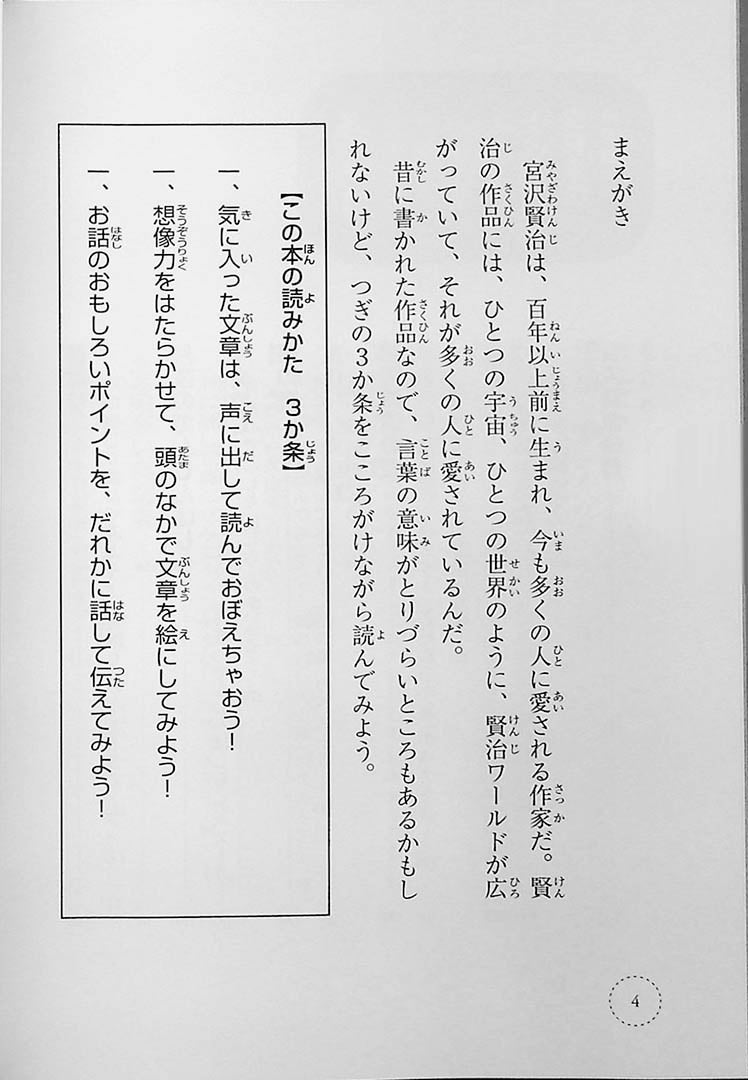 まえがき
宮沢賢治は、百年以上前に生まれ、今も多くの人に愛される作家だ。賢
治の作品には、ひとつの宇宙、ひとつの世界のように、賢治ワールドが広
がっていて、それが多くの人に愛されているんだ。
昔に書かれた作品なので、言葉の意味がとりづらいところもあるかもし
れないけど、つぎの3か条をこころがけながら読んでみよう。
【この本の読みかた 3か条】
一、気に入った文章は、声に出して読んでおぼえちゃおう！
一、想像力をはたらかせて、頭のなかで文章を絵にしてみよう！
一、お話のおもしろいポイントを、だれかに話して伝えてみよう！
4